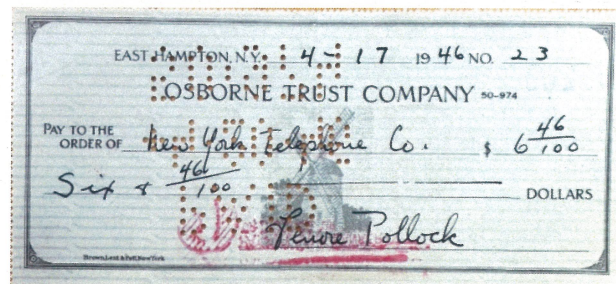 EAST HAMPTON, N.Y. 4-17 1946 NO. 23
OSBORNE TRUST COMPANY 50-974
PAY TO THE ORDER OF New York Telephone Co. $ 6 46/100
Six & 46/100 DOLLARS
Lenore Pollock
Brown, Lent & Pett, New York